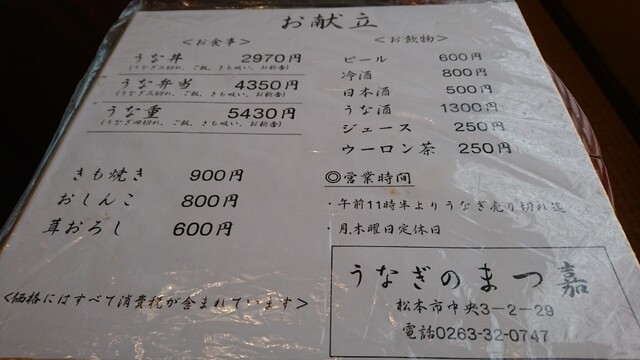 お献立
＜お食事＞
うな丼 2970円
(うなぎ二切れ、ご飯、きも吸い、お新香)
うな弁当 4350円
(うなぎ三切れ、ご飯、きも吸い、お新香)
うな重 5430円
(うなぎ四切れ、ご飯、きも吸い、お新香)
きも焼き 900円
おしんこ 800円
茸おろし 600円
＜価格にはすべて消費税が含まれています＞
＜お飲物＞
ビール 600円
冷酒 800円
日本酒 500円
うな酒 1300円
ジュース 250円
ウーロン茶 250円
◎営業時間
・午前11時半よりうなぎ売り切れ迄
・月木曜日定休日
うなぎのまつ嘉
松本市中央3－2－29
電話0263-32-0747